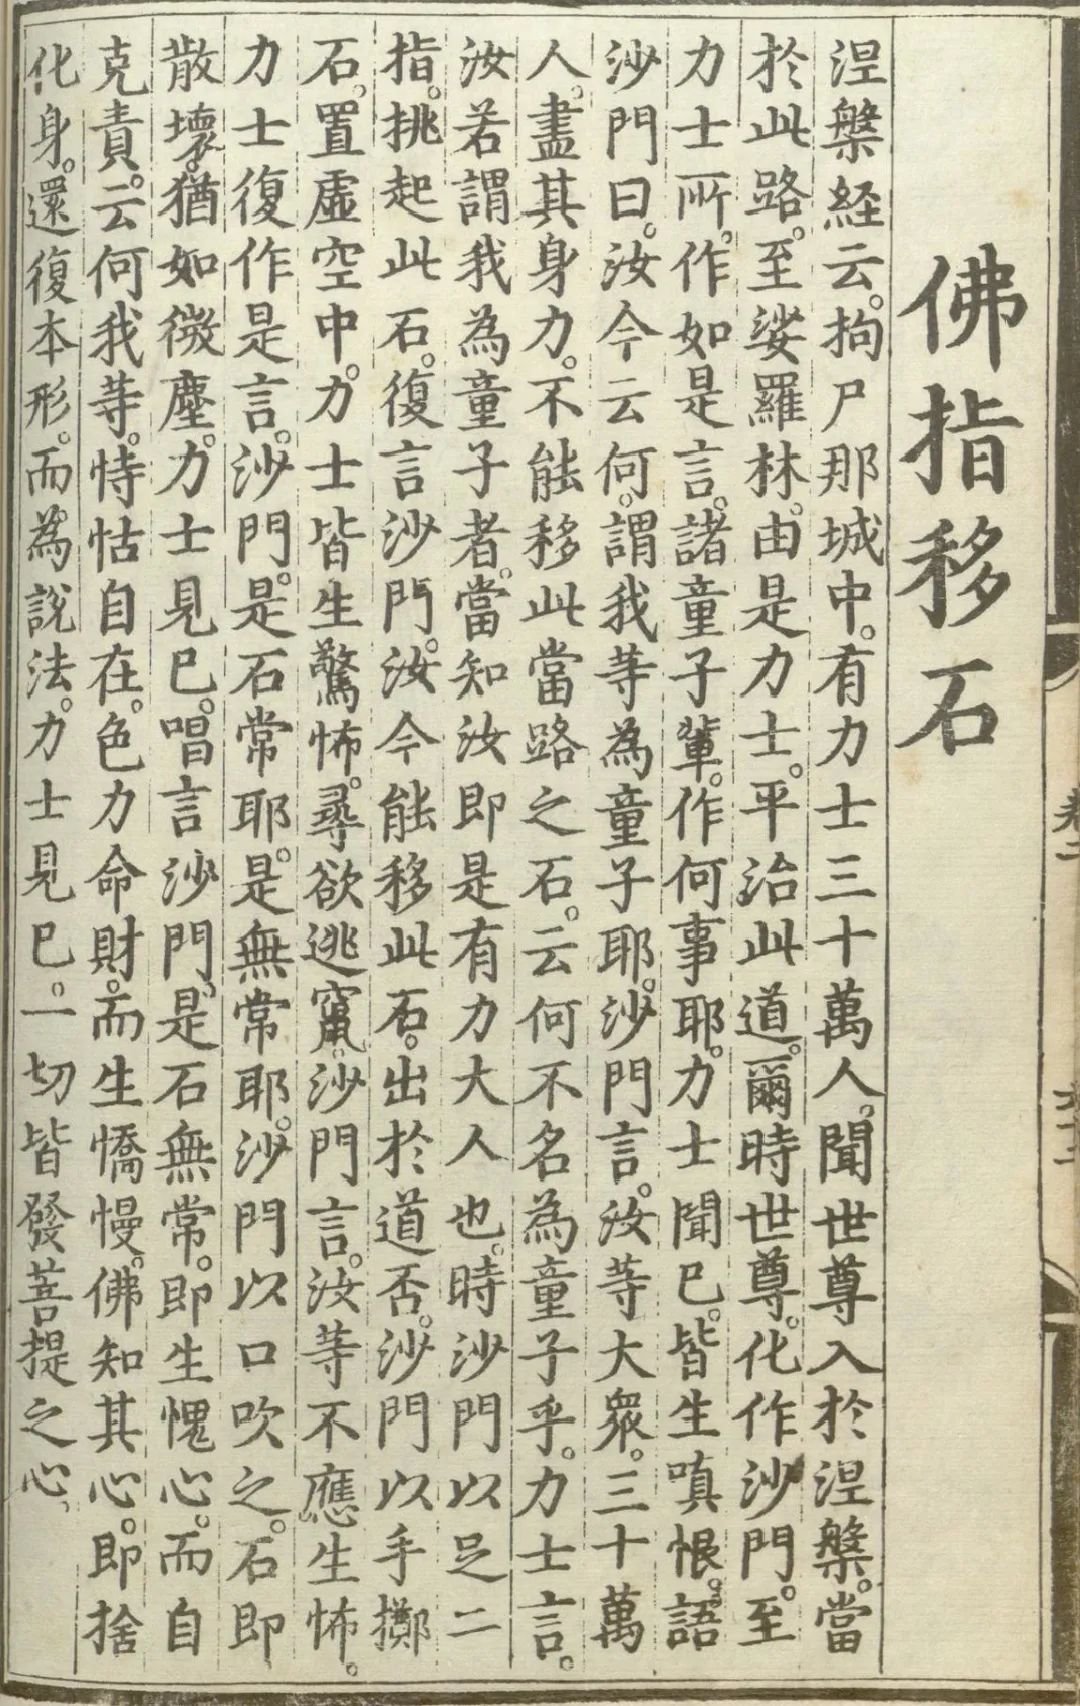 佛指移石
涅槃経云。拘尸那城中。有力士三十萬人。聞世尊入於涅槃。當
於此路。至娑羅林。由是力士。平治此道。爾時世尊。化作沙門。至
力士所。作如是言。諸童子輩。作何事耶。力士聞已。皆生嗔恨。語
沙門曰。汝今云何。謂我等為童子耶。沙門言。汝等大眾。三十萬
人。盡其身力。不能移此當路之石。云何不名為童子乎。力士言。
汝若謂我為童子者。當知汝即是有力大人也。時沙門以足二
指。挑起此石。復言沙門。汝今能移此石。出於道否。沙門以手擲
石。置虛空中。力士皆生驚怖。尋欲逃竄。沙門言。汝等不應生怖。
力士復作是言。沙門。是石常耶。是無常耶。沙門以口吹之。石即
散壞。猶如微塵。力士見已。唱言沙門。是石無常。即生愧心。而自
克責。云何我等。恃怙自在。色力命財。而生憍慢。佛知其心。即捨
化身。還復本形。而為說法。力士見已。一切皆發菩提之心。